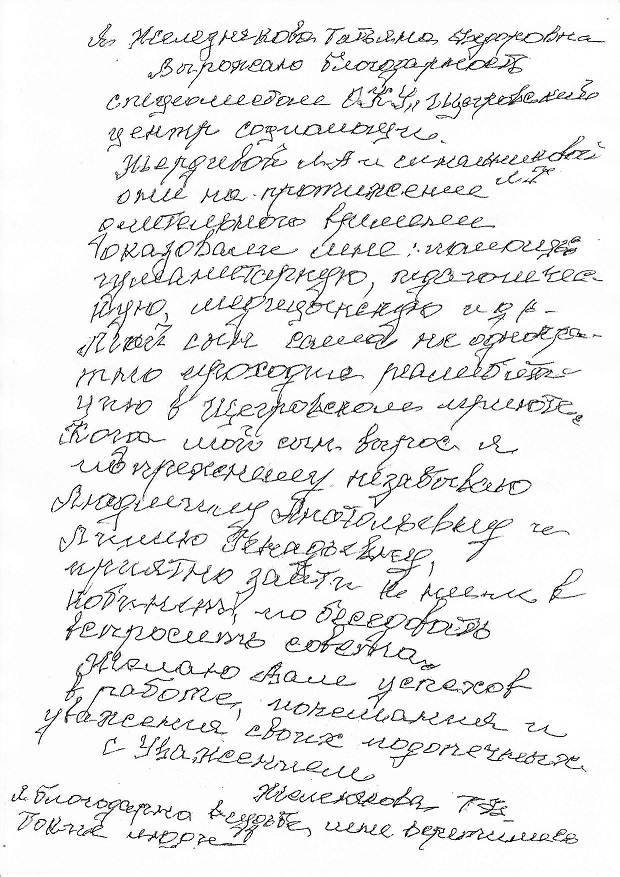 Я Железнякова Татьяна Федоровна
Выражаю благодарность
специалистам О.К.У, Щегровский
центр социомощи.
Жердивой Л.А и синельниковой
они на протижение Л.Г
длительного времени
оказовали мне помощь
гуманитарную, педагогичес-
кую, медицынскую и др-
Мой сын Саша не однокра-
тно проходил реалибита-
цию в Щегровском приюте.
Когда мой сын вырос я
по прежнему незабываю
Людмилу Анатольевну и
Лилию Генадьевну,
приятно зайти к ним в
кобинет, по беседовать
вспросить совета.
Желаю Вам успехов
в работе, понемания и
уважения своих подопечных.
с Уважением
Железнякова Т.Ф.
я благодарна в судьбе, мне встретились
такие люди!!